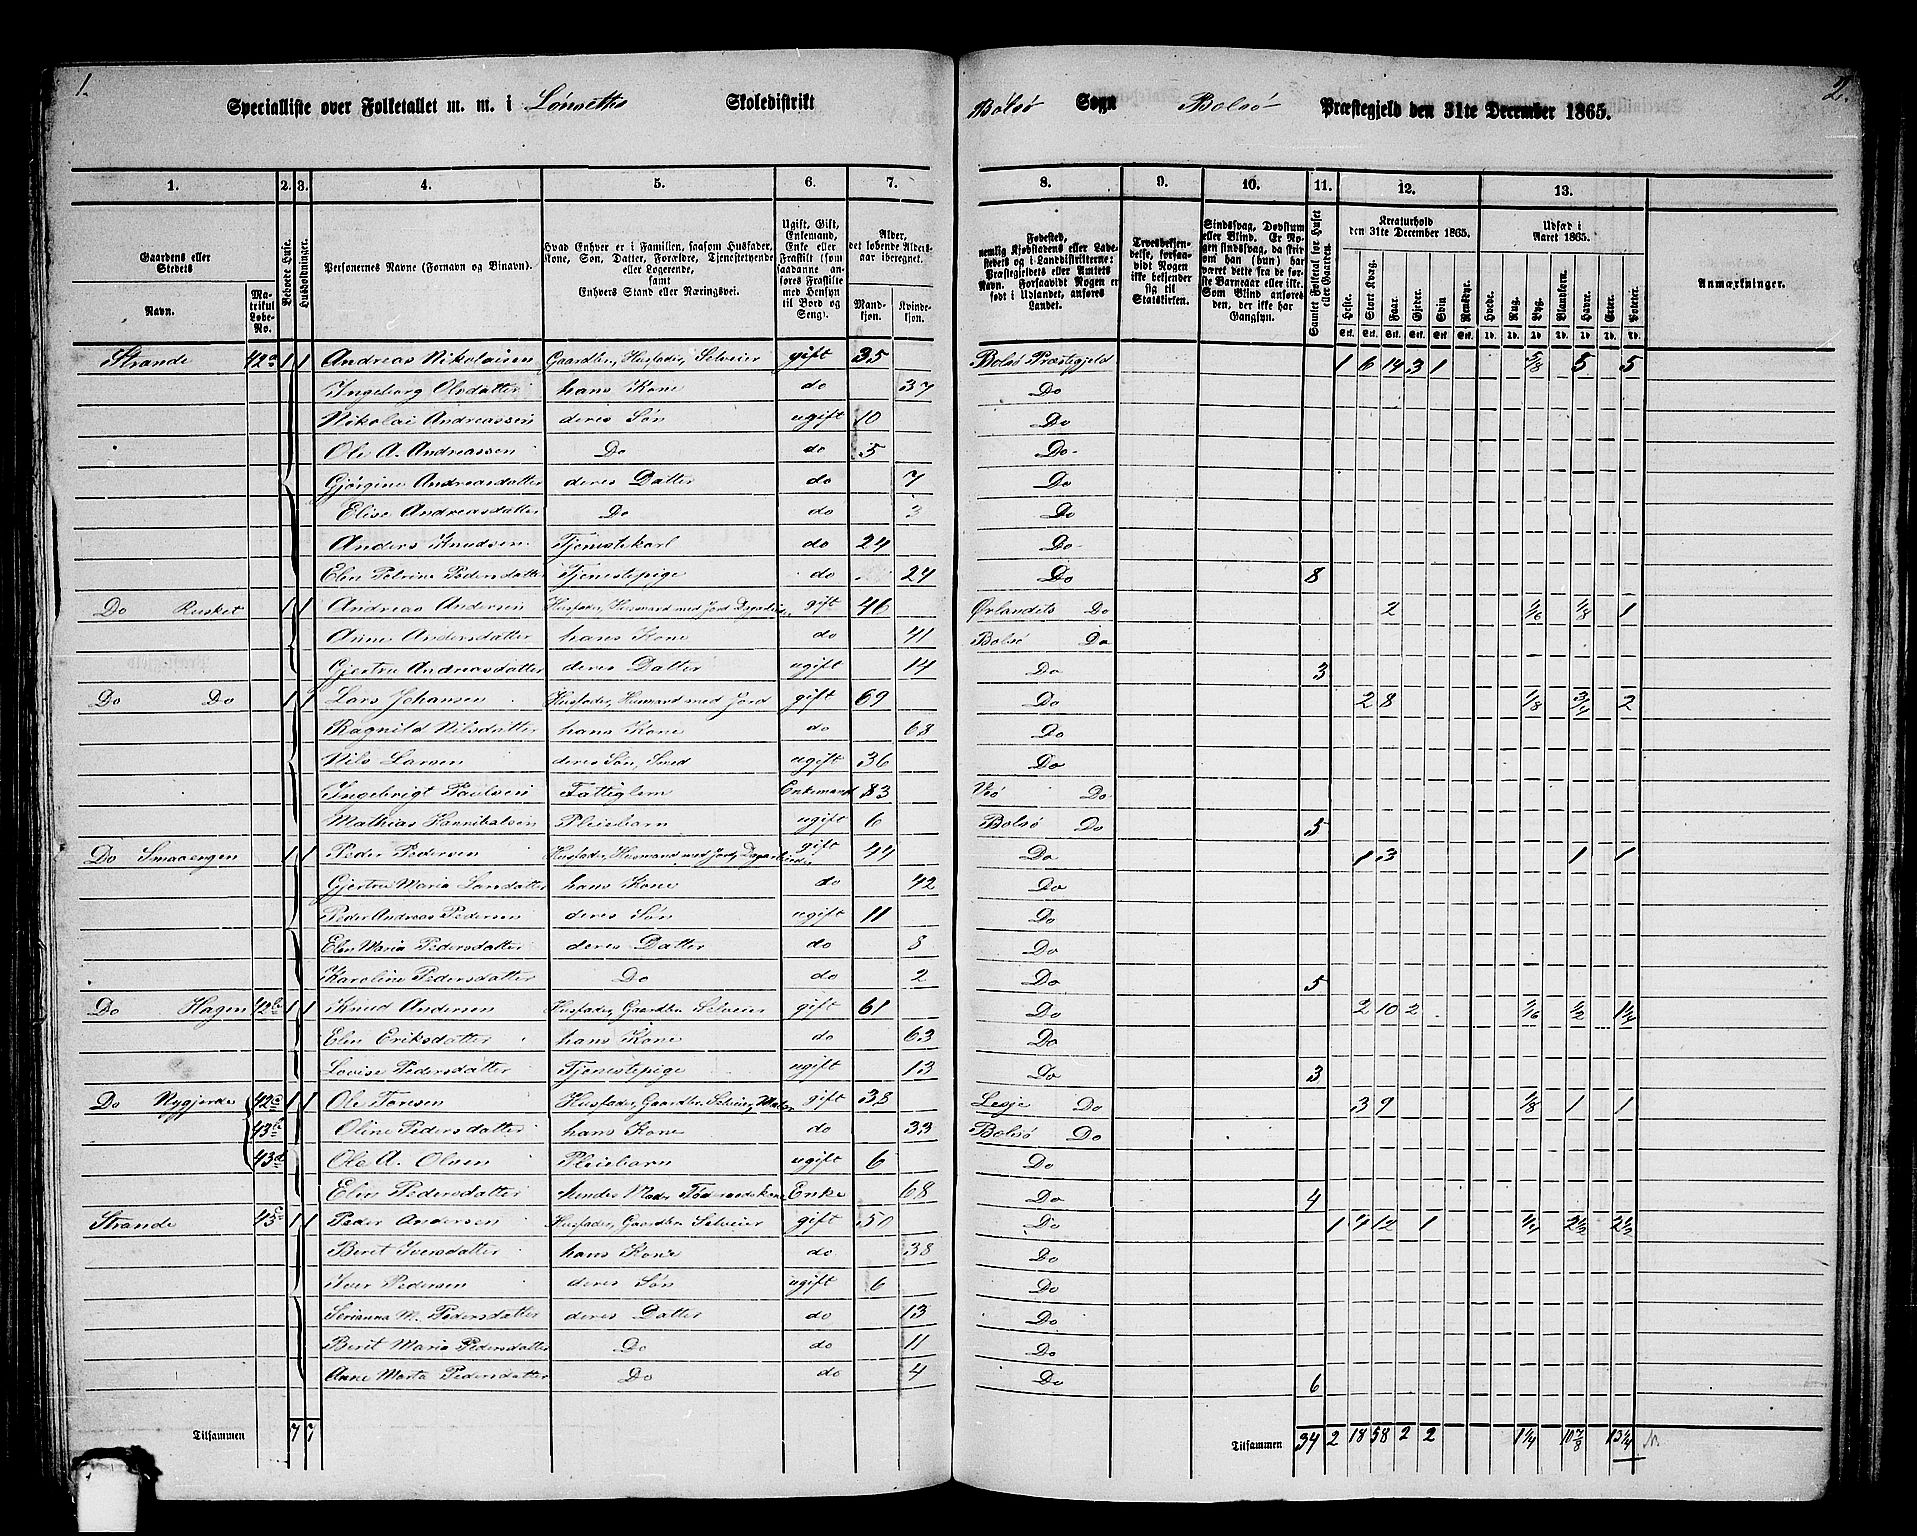 1.
Specialliste over Folketallet m. m. i Lønseths Skoledistrikt
Bolsø Sogn Bolsø Præstegjeld den 31te December 1865.
2.
1. 2. 3. 4. 5. 6. 7. 8. 9. 10. 11. 12. 13.
Gaardens eller Stedets
Navn.
Matrikul Løbe-No.
Beboede Huse.
Husholdninger.
Personernes Navne (Fornavn og Binavn).
Hvad Enhver er i Familien, saasom Husfader, Kone, Søn, Datter, Forældre, Tjenestetyende eller Logerende, samt Enhvers Stand eller Næringsvei.
Ugift, Gift, Enkemand, Enke eller Fraskilt (som saadanne anføres Fraskilte med Hensyn til Bord og Seng).
Alder, det løbende Alders-aar iberegnet.
Mand-kjøn. Kvinde-kjøn.
Fødested, nemlig Kjøbstadens eller Ladestedets og i Landdistrikterne: Præstegjeldets eller Amtets Navn. Forsaavidt Nogen er født i Udlandet, anføres Landet.
Troesbekjendelse, forsaavidt Nogen ikke bekjender sig til Statskirken.
Sindssvag, Døvstum eller Blind. Er Nogen sindssvag, da skrives om han (hun) har været dette fra de første Barneaar eller ikke. Som Blind anføres den, der ikke har Gangsyn.
Samlet Folketal for Huset eller Gaarden.
Kreaturhold den 31te December 1865.
Heste. Stort Kvæg. Faar. Gjeder. Svin Rensdyr.
Udsæd i Aaret 1865.
Hvede. Rug. Byg. Blandkorn. Havre. Erter. Poteter.
Anmærkninger.
Strande 42a 1 1 Andreas Nikolaisen Gaardbr, Husfader, Selveier gift 35 Bolsø Præstegjeld 1 6 14 3 1 5/8 5 5
Ingeborg Olsdatter hans Kone do 37 Do
Nikolai Andreassen deres Søn ugift 10 Do
Ole A. Andreassen Do do 5 Do
Gjørgine Andreasdatter deres Datter do 7 Do
Elise Andreasdatter Do do 3 Do
Anders Knudsen Tjenestekarl do 24 Do
Elen Petrine Pedersdatter Tjenestepige do 24 Do 8
Do Rusket 1 1 Andreas Andersen Husfader, Husmand med Jord, Dagarbeider gift 46 Ørlandets Do 2 1/16 1/8 1
Anne Andersdatter hans Kone do 41 Bolsø Do
Gjertru Andreasdatter deres Datter ugift 14 Do 3
Do Do 1 1 Lars Johansen Husfader, Husmand med Jord gift 69 Do 2 8 1/8 3/4 2
Ragnild Nilsdatter hans Kone do 68 Do
Nils Larsen deres Søn, Smed ugift 36 Do
Ingebrigt Paulsen Fattiglem Enkemand 83 Veø Do
Mathias Hannibalsen Pleiebarn ugift 6 Bolsø Do 5
Do Smaaengen 1 1 Peder Pedersen Husfader, Husmand med Jord, Dagarbeider gift 44 Do 1 3 1 1
Gjertru Maria Larsdatter hans Kone do 42 Do
Peder Andreas Pedersen deres Søn ugift 11 Do
Elen Maria Pedersdatter deres Datter do 8 Do
Karoline Pedersdatter Do do 2 Do 5
Do Hagen 42b 1 1 Knud Andersen Husfader, Gaardbr. Selveier gift 61 Do 2 10 2 3/16 1/2 1 1/4
Elen Eriksdatter hans Kone do 63 Do
Lovise Pedersdatter Tjenestepige ugift 13 Do 3
Do Nygjerde 42c 1 1 Ole Toresen Husfader, Gaardbr. Selveier, Maler gift 38 Lesje Do 3 9 1/8 1 1
43b Oline Pedersdatter hans Kone do 33 Bolsø Do
43d Ole A. Olsen Pleiebarn ugift 6 Do
Elen Pedersdatter hendes Moder Føderaadskone Enke 68 Do 4
Strande 43c 1 1 Peder Andersen Husfader, Gaardbr. Selveier gift 50 Do 1 4 12 1 1/4 2 1/2 2 1/2
Berit Iversdatter hans Kone do 38 Do
Iver Pedersen deres Søn ugift 6 Do
Serianna M. Pedersdatter deres Datter do 13 Do
Berit Maria Pedersdatter Do do 11 Do
Anne Marta Pedersdatter Do do 4 Do 6
Tilsammen 7 7
Tilsammen 34 2 18 58 2 2 1 1/4 10 7/8 13 1/4